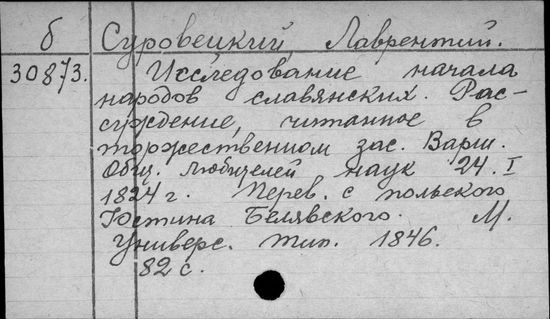 б Суровецкий, Лаврентий.
30873. Исследование начала
народов славянских. Рас-
суждение, читанное в
торжественном зас. Варш.
Общ. Любителей наук 24. I
1824 г. Перев. с польского
Юстина Белявского. М.
Универс. тип. 1846.
82 с.